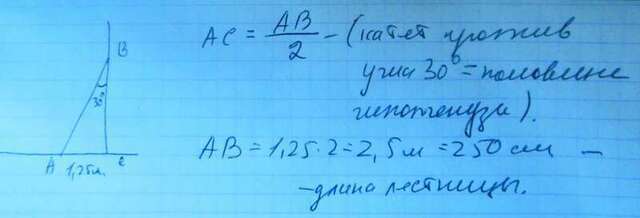 B
30°
A
1,25м.
C
AC = AB/2 - (катет против
угла 30° = половине
гипотенузы).
AB = 1,25·2 = 2,5м = 250 см -
- длина лестницы.